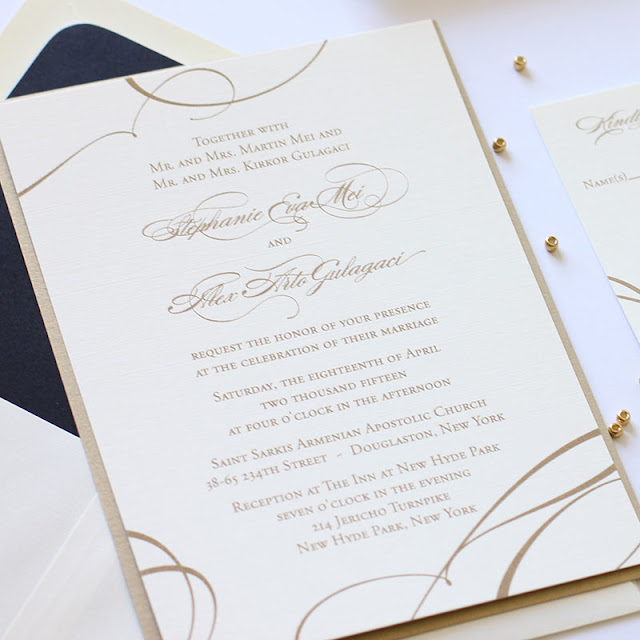 Together with
Mr. and Mrs. Martin Mei and
Mr. and Mrs. Kirkor Gulagaci
Stephanie Eugi Mei
and
Alex Arto Gulagaci
request the honor of your presence
at the celebration of their marriage
Saturday, the eighteenth of April
two thousand fifteen
at four o'clock in the afternoon
Saint Sarkis Armenian Apostolic Church
38-65 234th Street - Douglaston, New York
Reception at The Inn at New Hyde Park
seven o'clock in the evening
214 Jericho Turnpike
New Hyde Park, New York
Name(s)